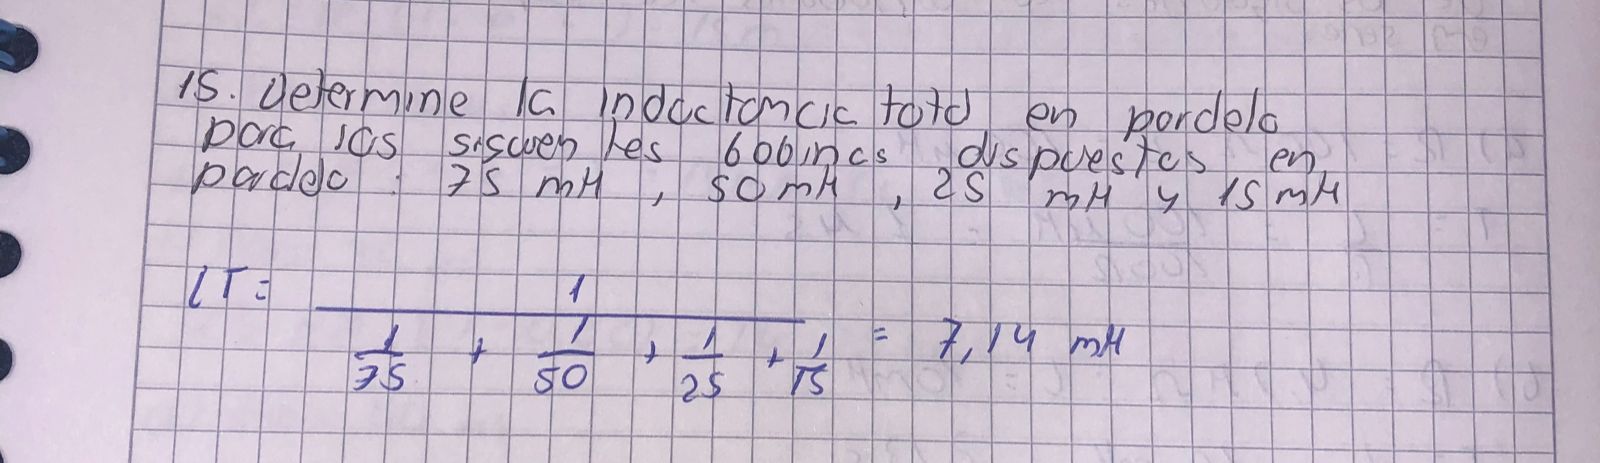 15. Determine la inductancia total en paralelo
para las siguientes bobinas dispuestas en
paralelo : 75 mH , 50 mH , 25 mH y 15 mH
LT = 1 / (1/75 + 1/50 + 1/25 + 1/15) = 7,14 mH